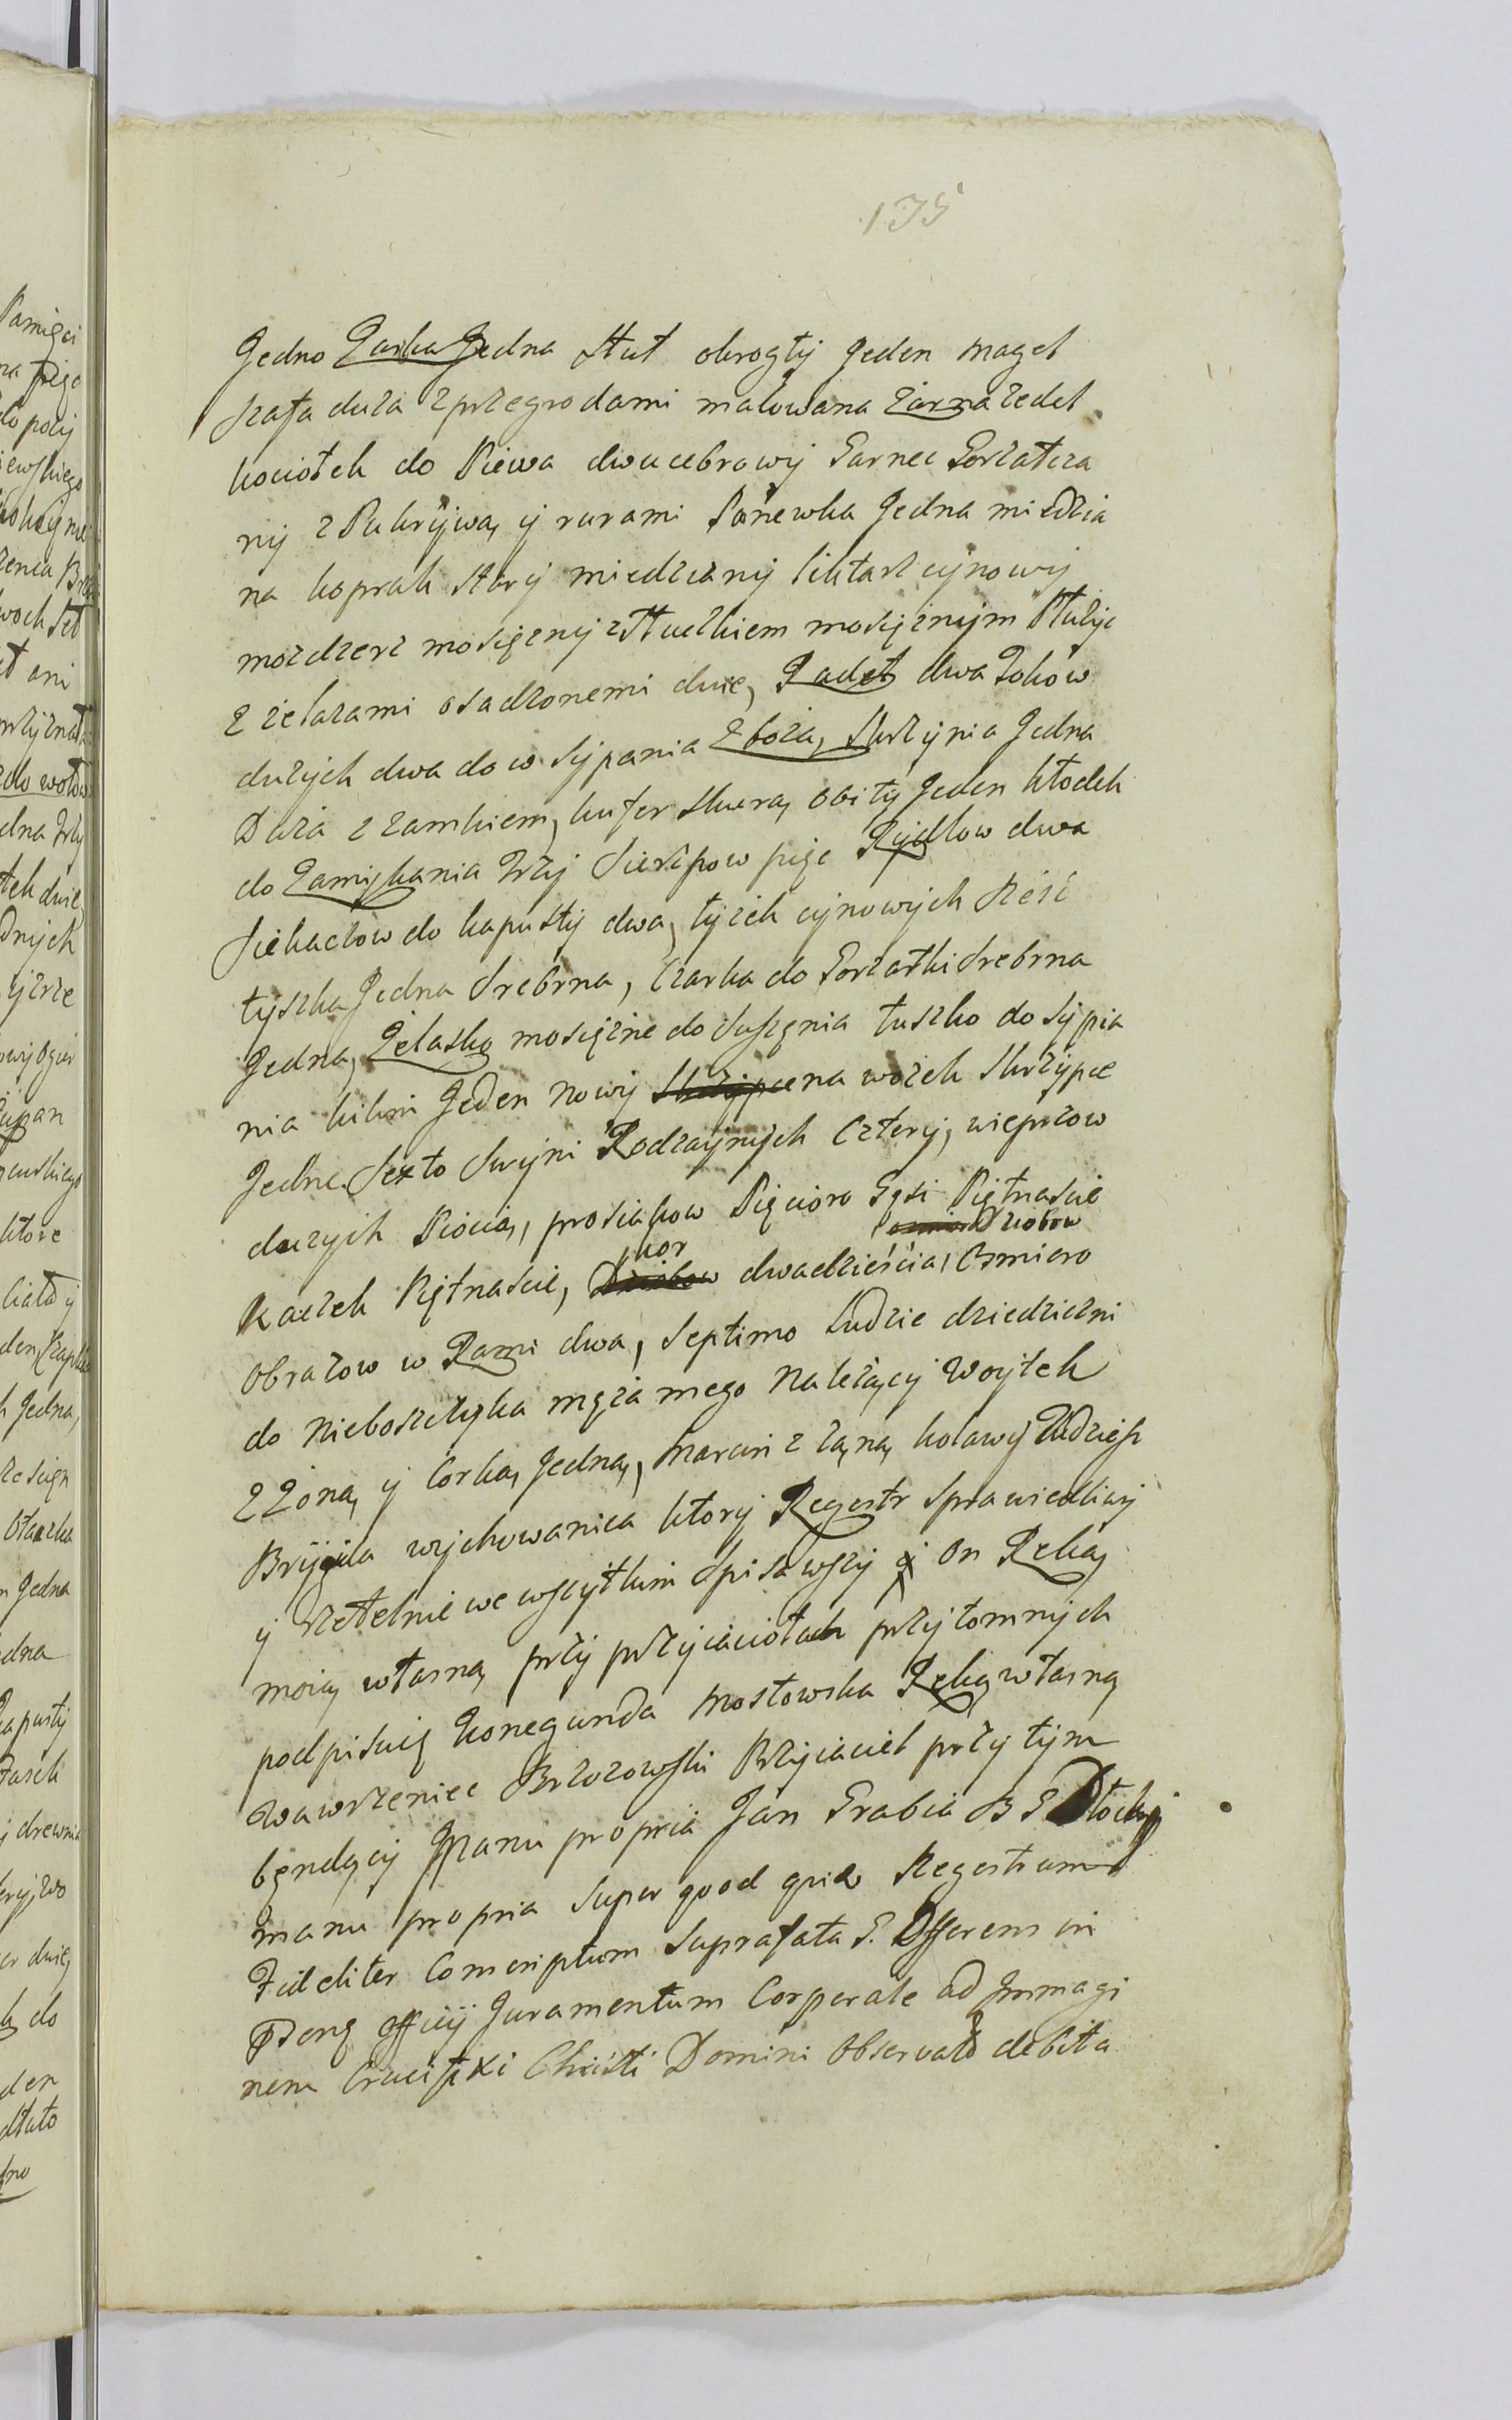 135
Jedno Jedna Stuł okrogły Jeden magel
Szafa duza z przegrodami malowana Zarna zedel
kociołek do Piewa dwucebrowy Garnec Gorzałcza
ny z Pukrywą y rurami Panewka Jedna miedzia
na koprak stary miedziany lichtarz cynowy
mozdzerz mosięzny z Stuczkiem mosięznym Płuzyc
z zelazami osadzonemi dwie, Radeł dwa Zokow
duzych dwa do wsypania Zboza, Skrzynia Jedna
Duza z zamkiem, kufer skurą obity Jeden kłodek
do Zamykania Trzy Sierzpow pięc Rydlow dwa
Siekaczow do kapusty dwa, łyzek cynowych sześć
łyszka Jedna Srebrna, Czarka do Gorzałki Srebrna
Jedna, Zelasko mosięzne do Suszenia łuszko do sypia
nia kilim Jeden nowy Skrzypce na wozek Skrzypce
Jedne. Sexto Swyni Rodzaynych Cztery, wieprzow
duzych Piecią, prosiakow Pięcioro Gęsi Piętnascie
osmior Drobow
Kaczek Piętnascie, Drobow kor dwadzieścia, Osmioro
Obrazow w Rami dwa, Septimo Ludzie dziedziczni
do Nieboszczyka męza mego Nalezący Woytek
z Zoną y Corką Jedną, Marcin z zoną kolawy Tudziesz
Brygida wychowanica ktory Regestr Sprawiedliwy
y rzetelnie we wszytkim Spisawszy y on Ręką
moią własną przy przyiaciołach przytomnych
podpisuię Konegunda Mostowska Ręką własną
Wawrzeniec Brzozowski Przyiaciel przy tym
będący Manu propria Jan Grabia B G
manu propria super quod qnidw Regestrum
Fideliter Conscriptum Suprafata G. Offerens in
Officij Juramentum Corporale ad Immagi
nem Crucifixi Christi Domini Observato debita